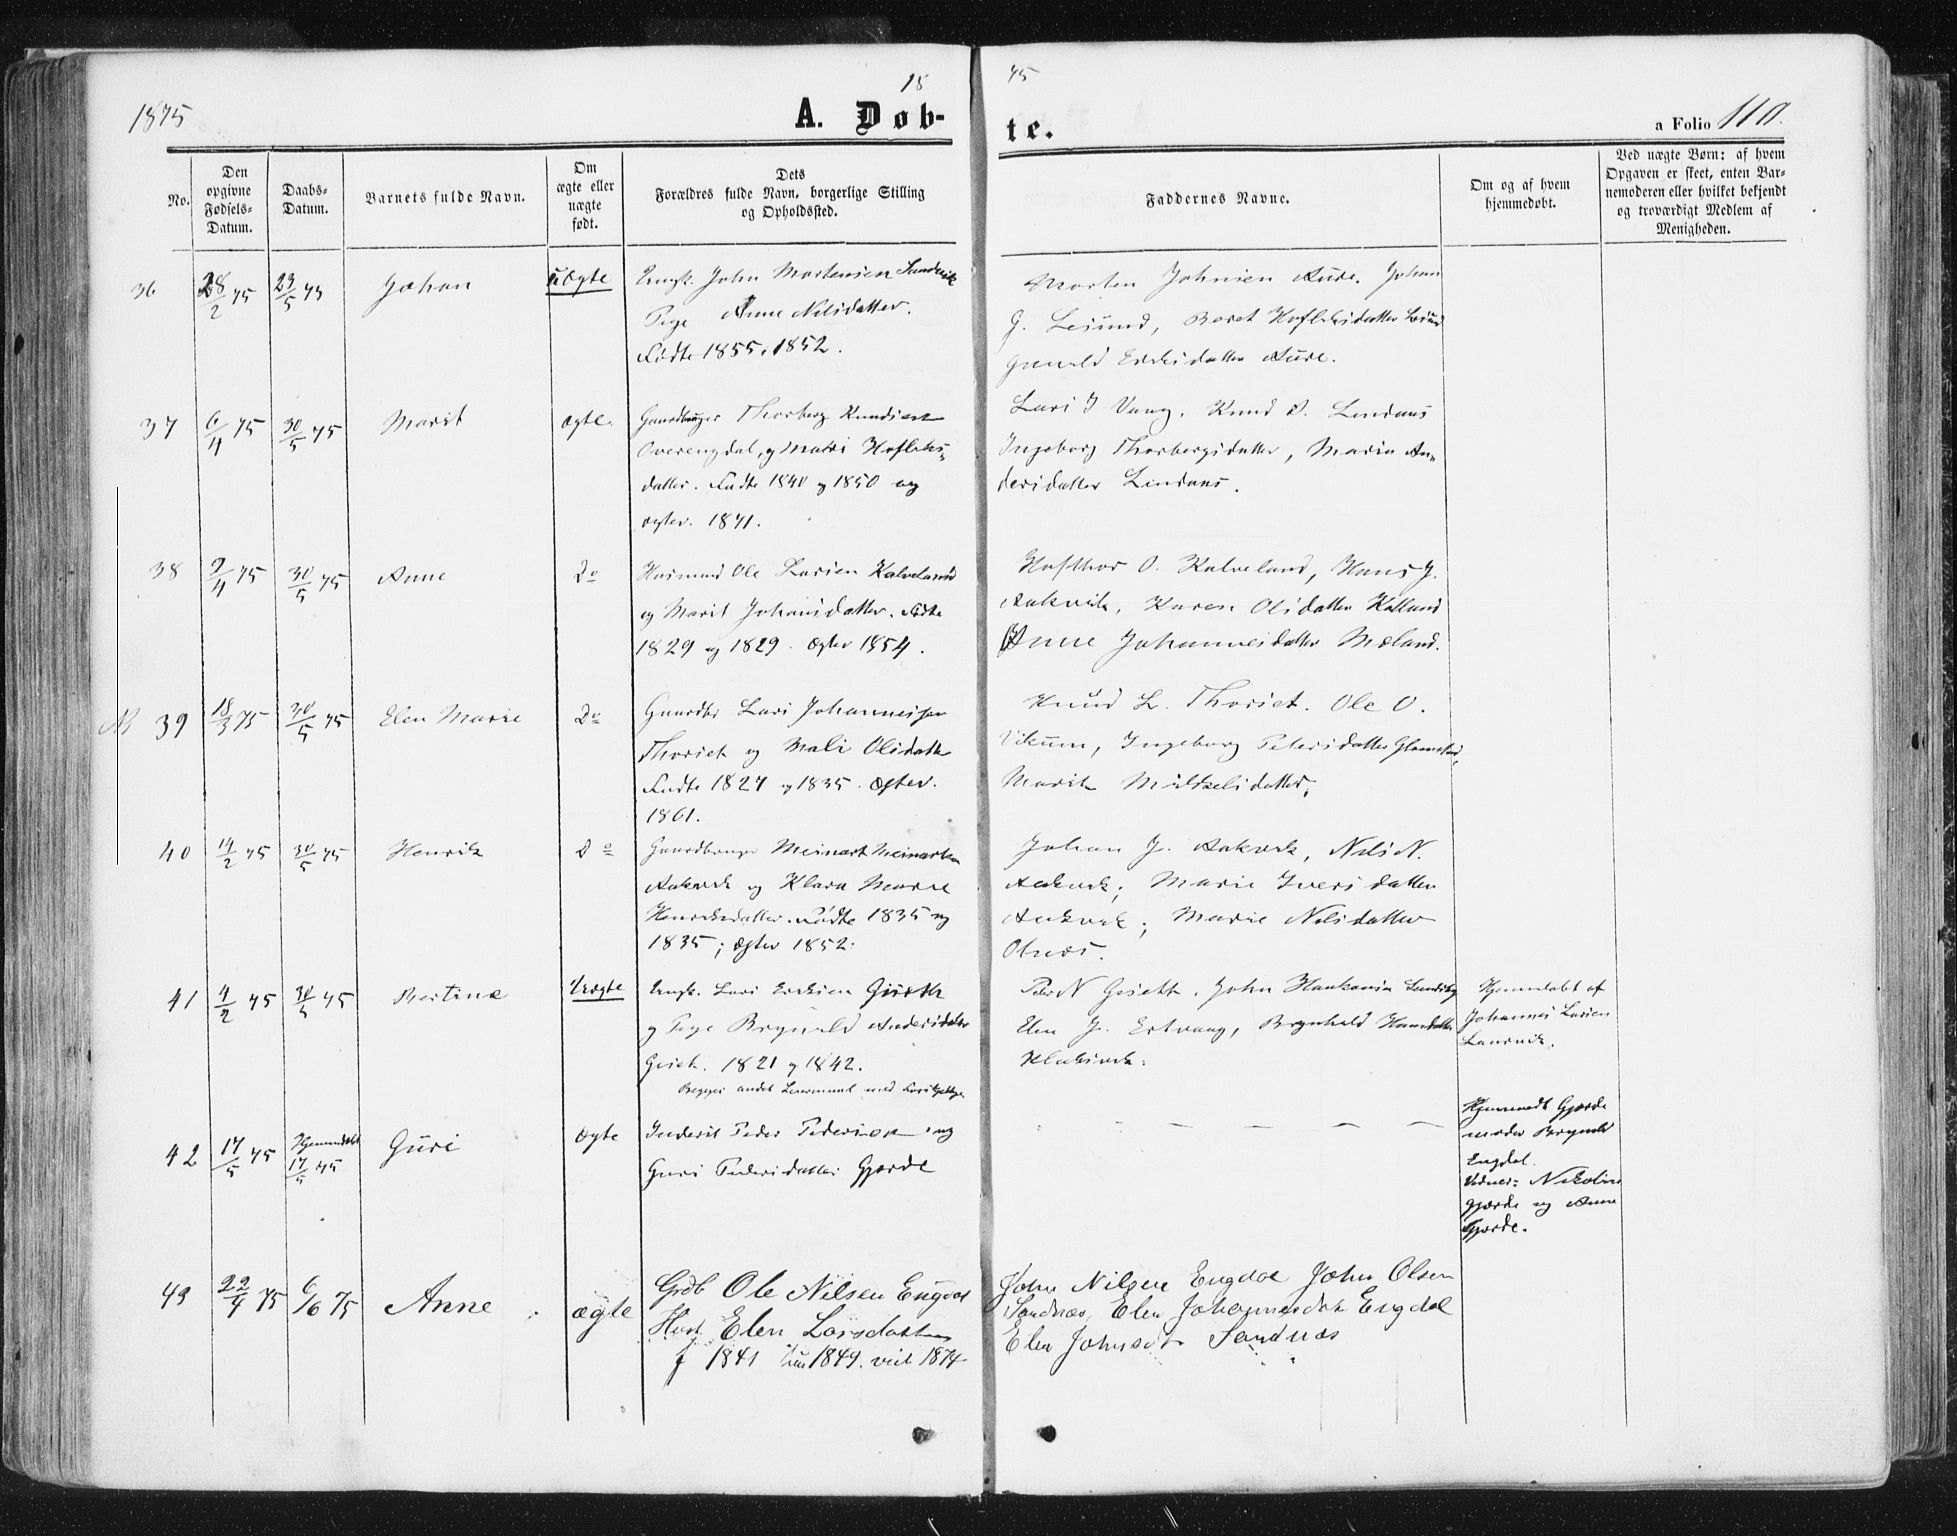 1875
18
75
A. Døb-
te.
a Folio 110.
No.
Den opgivne Fødsels-Datum.
Daabs-Datum.
Barnets fulde Navn.
Om ægte eller uægte født.
Dets Forældres fulde Navn, borgerlige Stilling og Opholdssted.
Faddernes Navne.
Om og af hvem hjemmedøbt.
Ved uægte Børn: af hvem Opgaven er skeet, enten Barnemoderen eller hvilket bekjendt og troværdigt Medlem af Menigheden.
36 28/2 75 23/5 75 Johan uægte
Ungk. John Mortensen Sandvik
Pige Anne Nilsdatter.
Fødte 1855, 1852.
Morten Johnsen Aure. Johan
J. Lesund, Beret Hoflelsdatter Lesund
Gunild Eriksdatter Aure.
37 6/4 75 30/5 75 Marit ægte.
Gaardbruger Thorberg Knudsen
Overengdal, og Marit Hoflels-
datter. Fødte 1840 og 1850 og
ægtev. 1871.
Lars J Vaag. Knud O. Lindaas
Ingeborg Thorbergsdatter, Maria An-
dersdatter Lindaas.
38 9/4 75 30/5 75 Anne Do
Husmand Ole Larsen Kalveland
og Marit Johansdatter. Fødte
1829 og 1829. ægtev 1854.
Hafthor O. Kalveland, Hans J.
Aakvik, Karen Olsdatter Kalland
Anne Johannesdatter Mæland.
NB 39 18/3 75 30/5 75 Elen Marie Do
Gaardbr Lars Johannessen
Thorset og Mali Olsdatt
Fødte 1827 og 1835. ægtev.
1861.
Knud L. Thorset. Ole O.
Vikum, Ingeborg Petersdatter Glamstad,
Marit Mikkelsdatter,
40 14/2 75 30/5 75 Henrik Do
Gaardbruger Meinart Meinartsen
Aakvik og Klara Marie
Henriksdatter. Fødte 1835 og
1835; ægtev 1852.
Johan J. Aakvik, Nils N.
Aakvik; Marie Iversdatter
Aakvik; Marie Nilsdatter
Olnæs.
41 4/2 75 30/5 75 Bertine Uægte
Ungk. Lars Eriksen Gisetk
og Pige Brynild Andersdatter
Gisetk. 1821 og 1842.
Begges andet Leiermaal med
Peter N Gisetk. John Haakonsen
Elen J. Ertvaag, Brynhild Hansdatter
Klaksvik.
Hjemmedøbt af
Johannes Larsen
Laurvik.
42 17/5 75 Hjemmedøbt
17/5 75 Guri ægte
Inderst Peder Pedersen og
Guri Pedersdatter Gjørde
— — — — — —
Hjemmedt Gjorde
moder Brynild
Engdal.
Vidner: Nikoline
Gjørde og Anne
Gjørde.
43 22/4 75 6/6 75 Anne ægte
Grdb Ole Nilsen Engdal
Hust Elen Larsdatter
f 1841 hun 1849. viet 1874
John Nilsen Engdal John Olsen
Sandnæs, Elen Johannesdat Engdal
Elen Johnsdt Sandnæs